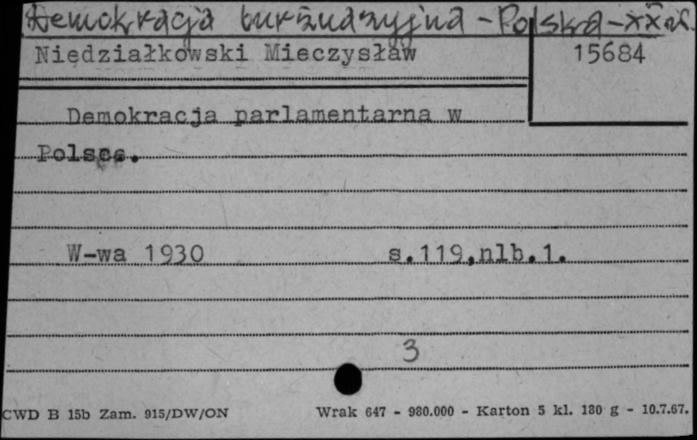 Demokracja burżuazyjna - Polska - XX w.
Niedziałkowski Mieczysław
15684
Demokracja parlamentarna w
Polsce.
W-wa 1930 s.119,nlb.1.
3
CWD B 15b Zam. 915/DW/ON Wrak 647 - 980.000 - Karton 5 kl. 180 g - 10.7.67.